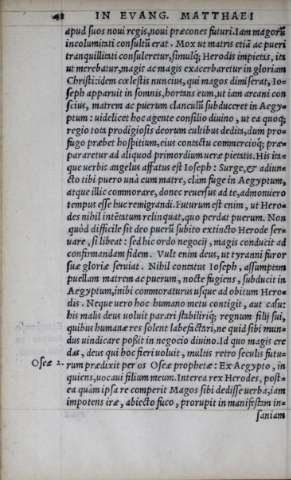 48 IN EVANG. MATTHAEI
apud suos noui regis, noui præcones futuri. Iam magorũ
incolumitati consultũ erat. Mox ut matris etiã ac pueri
tranquillitati consuleretur, simulq́; Herodis impietas, ita
ut merebatur, magis ac magis exacerbaretur in gloriam
Christi: idem cœlestis nuncius, qui magos dimiserat, Io=
seph apparuit in somnis, hortans eum, ut iam arcani con
scius, matrem ac puerum clanculũ subduceret in Aegy=
ptum: uidelicet hoc agente consilio diuino, ut ea quoq;
regio tota prodigiosis deorum cultibus dedita, dum pro=
fugo præbet hospitium, eius contactu commercioq́; præ=
pararetur ad aliquod primordium ueræ pietatis. His ita=
que uerbis angelus affatus est Ioseph: Surge, & adiun=
cto tibi puero unà cum matre, clàm fuge in Aegyptum,
atque illic commorare, donec reuersus ad te, admoniero
tempus esse huc remigrandi. Futurum est enim, ut Hero=
des nihil intẽtatum relinquat, quo perdat puerum. Non
quòd difficile sit deo puerũ subito extincto Herode ser=
uare, si libeat: sed hic ordo negocij, magis conducit ad
confirmandam fidem. Vult enim deus, ut tyranni furor
suæ gloriæ seruiat. Nihil contatus Ioseph, assumptam
puellam matrem ac puerum, nocte fugiens, subducit in
Aegyptum, inibi commoraturus usque ad obitum Hero=
dis. Neque uero hoc humano metu contigit, aut casu:
his malis deus uoluit parari stabiliriq́; regnum filij sui,
quibus humanæ res solent labefactari, ne quid sibi mun=
dus uindicare possit in negocio diuino. Id quo magis cre
das, deus qui hoc fieri uoluit, multis retro seculis futu=
Oseæ 2. rum prædixit per os Oseæ prophetæ: Ex Aegypto, in
quiens, uocaui filium meum. Interea rex Herodes, post=
ea quàm ipsa re comperit Magos sibi dedisse uerba, iam
impotens iræ, abiecto fuco, prorupit in manifestam in=
saniam